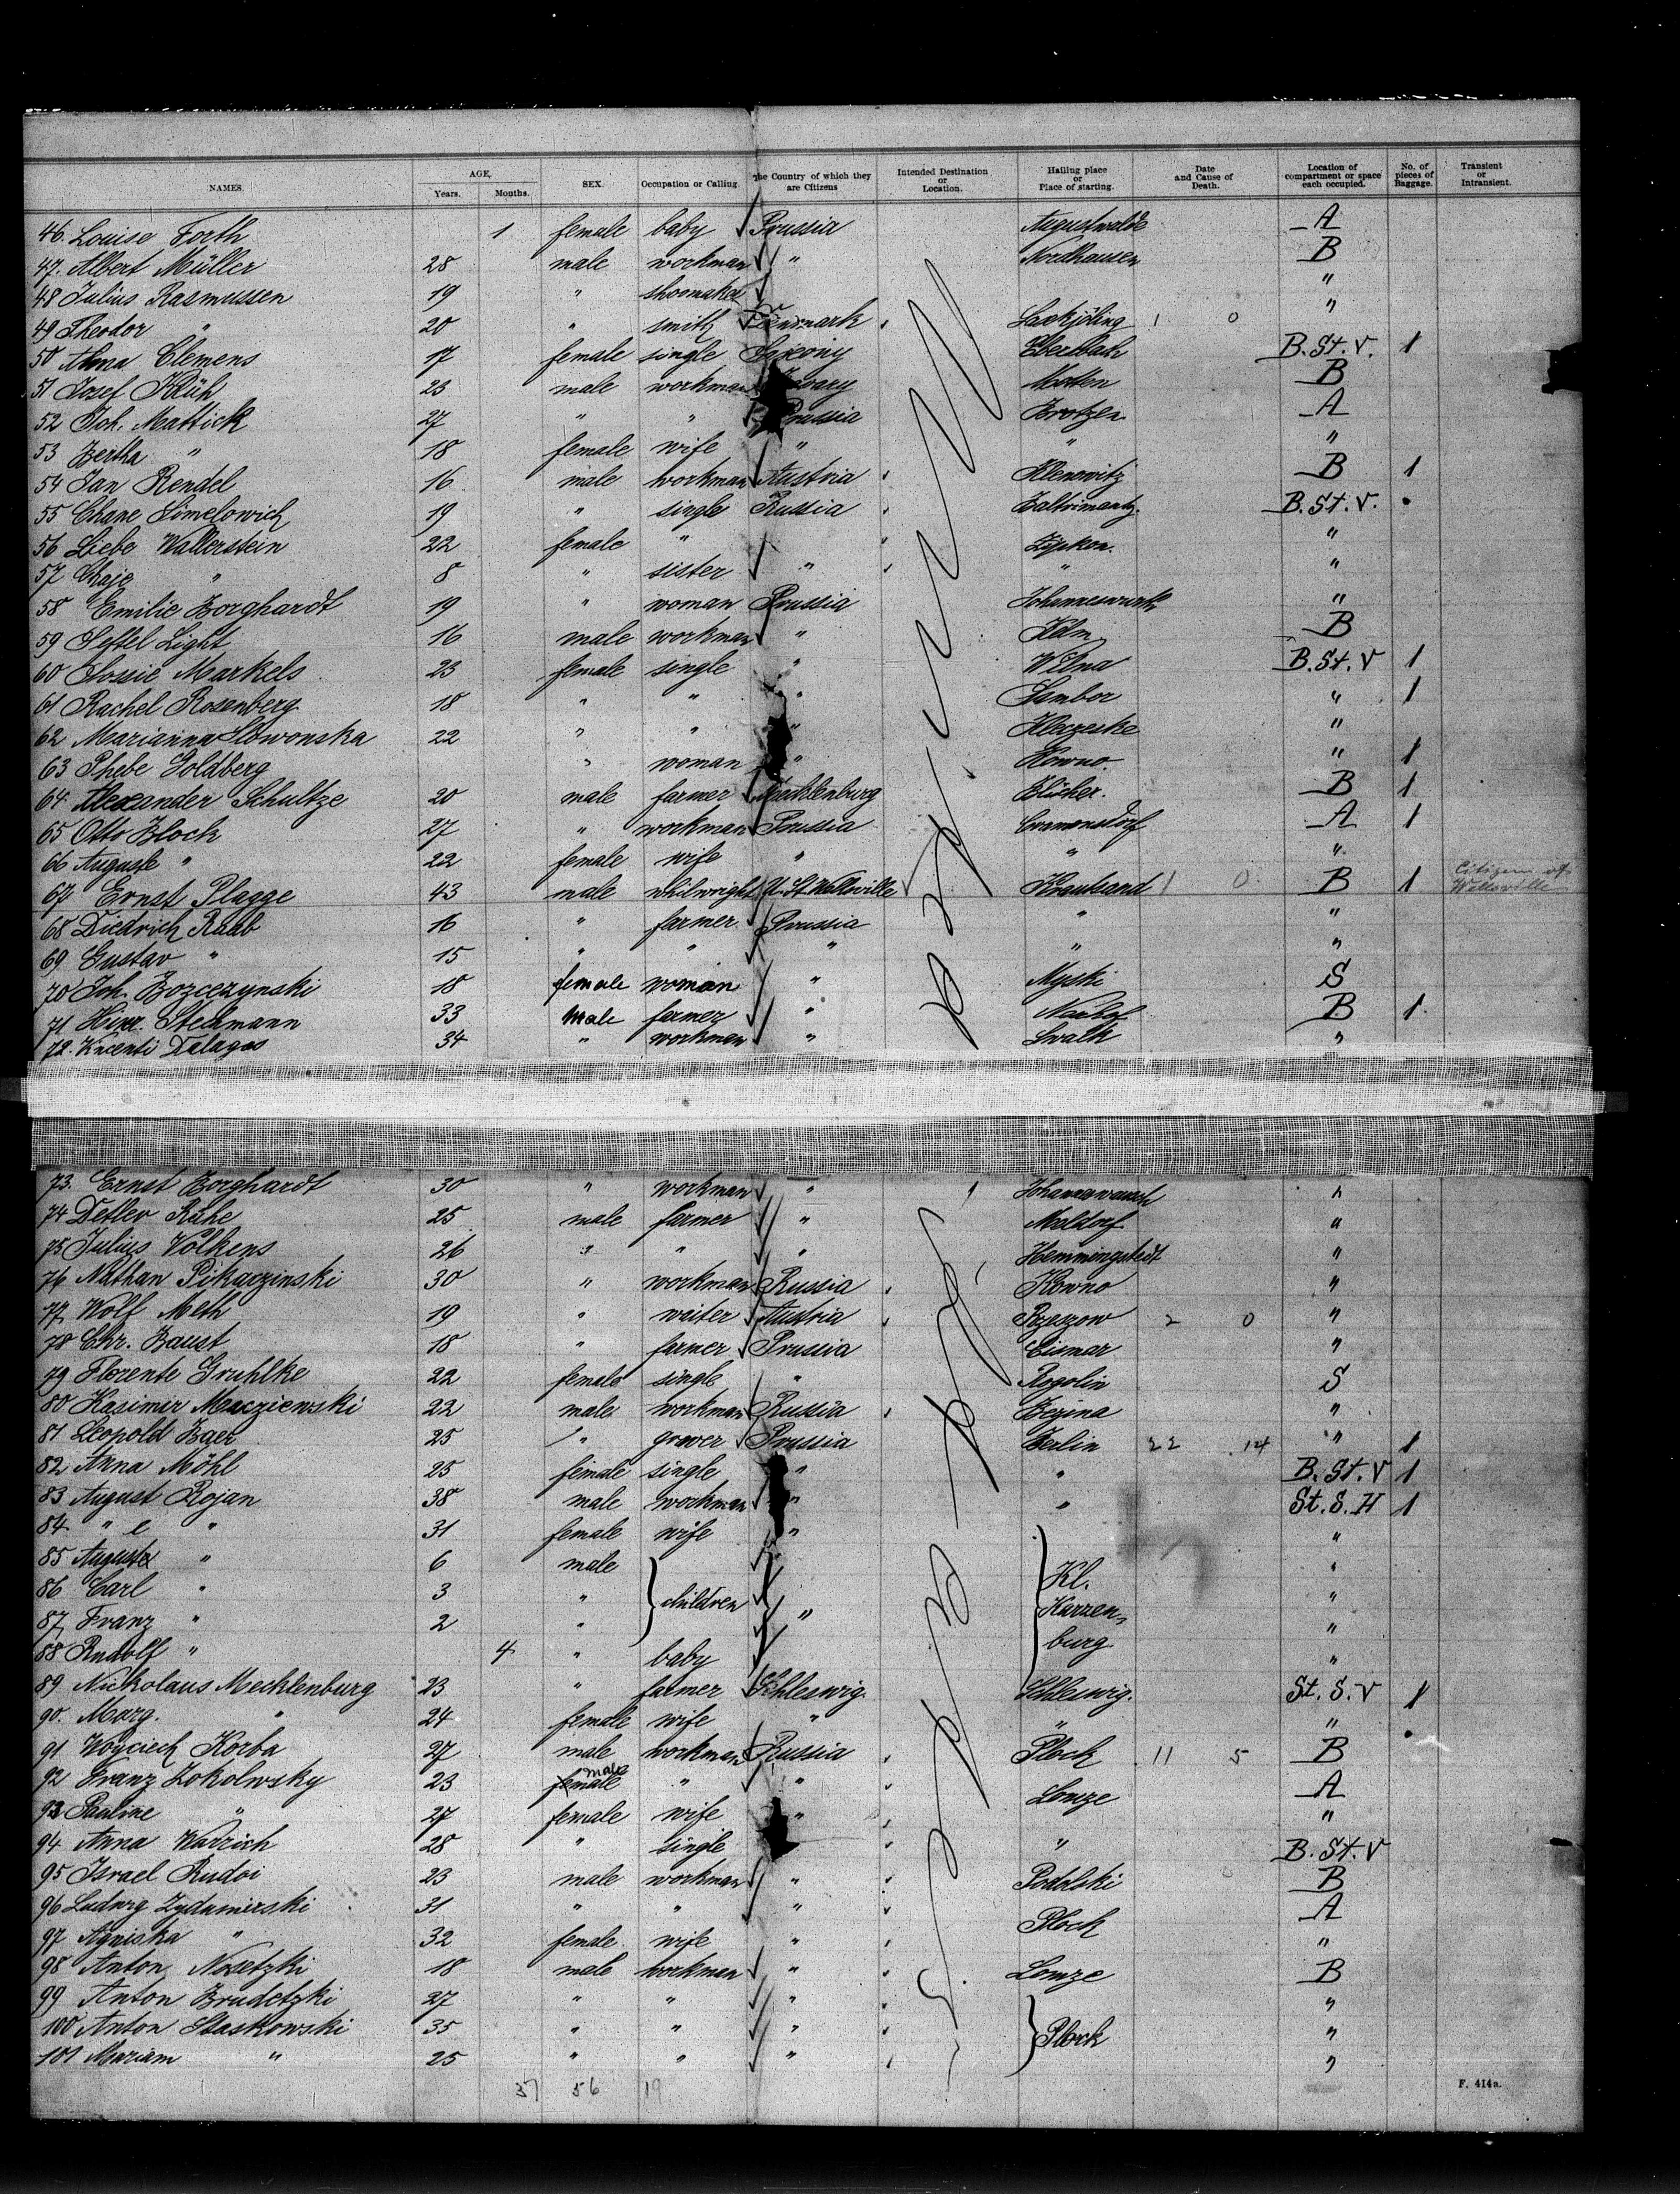 NAMES. AGE, Years. Months. SEX. Occupation or Calling. The Country of which they are Citizens Intended Destination or Location. Hailing place or Place of starting. Date and Cause of Death. Location of compartment or space each occupied. No. of pieces of Baggage. Transient or Intransient.
46. Louise Forth 1 female baby Prussia Augustwalde A
47. Albert Müller 28 male workman " Nordhausen B
48 Julius Rasmussen 19 " shoemaker "
49 Theodor " 20 " smith Denmark Saxkjöling 1 0 "
50 Clemens 17 female single Saxony Eberbach B. St. V. 1
51 Josef 23 male workman Morten B
52 Joh. Mattick 27 " " Prussia Brotzen A
53 Bertha " 18 female wife " " "
54 Jan Rendel 16 male workman Austria Klenowitz B 1
55 Chane Simelowich 19 " single Russia B. St. V.
56 Liebe Wallerstein 22 female " "
57 Chaje " 8 " sister " " "
58 Emilie Borghardt 19 " woman Prussia "
59 Light 16 male workman " B
60 Markels 23 female single " Wilna B. St. V 1
61 Rachel Rosenberg 18 " " " Sambor " 1
62 Marianna Slowonska 22 " " " "
63 Phebe Goldberg " woman " Kowno. " 1
64 Alexander Schultze 20 male farmer Mecklenburg Blücher. B 1
65 Otto Block 27 " workman Prussia A 1
66 Auguste " 22 female wife " " "
67 Ernst Plagge 43 male whilwright U. St. Wellsville Krautsand 1 0 B 1 Citizen of Wellsville
68 Diedrich Raab 16 " farmer Prussia " "
69 Gustav " 15 " " " " "
70 Joh. Bozcczynski 18 female woman " Myski S
71 Hinr. Steckmann 33 male farmer " B 1
72. Kncenti Dalagas 34 " workman " Swalk "
73. Ernst Borghardt 30 " workman " "
74 Detlev Rühe 25 male farmer " Meldorf "
75 Julius Volkens 26 " " " Hemmingstedt "
76 Nathan Pikaczinski 30 " workman Russia Kowno "
77 Wolf Meth 19 " waiter Austria Rzeszow 2 0 "
78 Chr. Baust 18 " farmer Prussia Cismar "
79 Florente Gruhlke 22 female single " Rogolin S
80 Kasimir Macziewski 22 male workman Russia Bezina "
81 Leopold Baer 25 " grover Prussia Berlin 22 14 " 1
82 Anna Möhl 25 female single " " B. St. V 1
83 August Rojan 38 male workman " " St. S. H 1
84 " e " 31 female wife " "
85 August " 6 male "
86 Carl " 3 " children Kl. Karzenburg "
87 Franz " 2 " " "
88 Rudolf " 4 " baby "
89 Nickolaus Mecklenburg 23 " farmer Schleswig. Schleswig. St. S. V 1
90. Marg. " 24 female wife " " "
91 Woyciech Korba 27 male workman Russia Plock 11 5 B
92 Franz Zokolwsky 23 male " " Lomze A
93 Pauline " 27 female wife " "
94 Anna 28 " single " B. St. V
95 Israel Rudoi 23 male workman " Podolski B
96 Ludwig Zydamirski 31 " " " Plock A
97 Agniska " 32 female wife " "
98 Anton Nosetzki 18 male workman " Lomze B
99 Anton Brudetzki 27 " " " "
100 Anton Staskowski 35 " " " Plock "
101 Mariam " 25 " " " "
37 56 19
F. 414a.